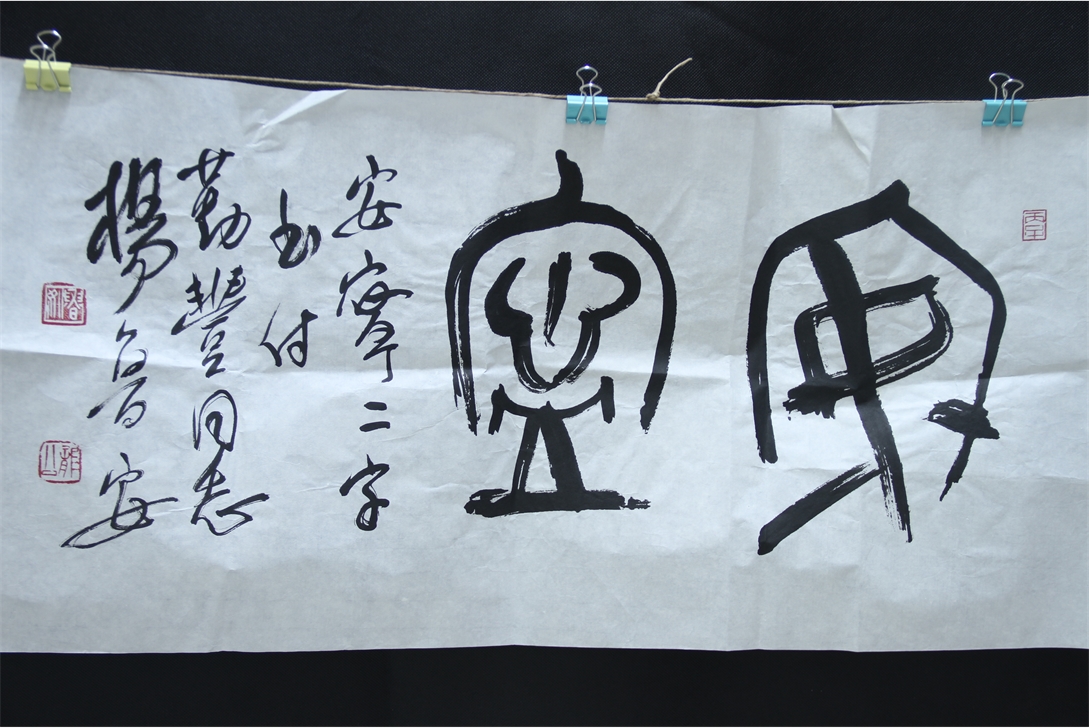 安寧
安寧二字
書付
勤豐同志
楊魯安